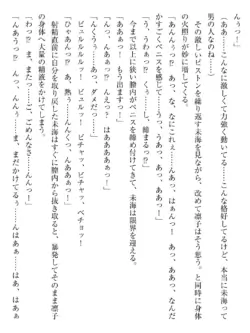 んぅっー！」
「あぁっ！　こんなに激しくて力強く動いてる……こんな格好してるけど、本当に未海って
男の人なの……」
　その激しいピストンを繰り返す未海を見ながら、改めて凛子はそう奮う。と同時に身体
の火照りが更に増してくる。
「んあああっ⁉　あ、な、なにこれぇ……んはぁんっー！　あっ、ああっ、んっ、な、なん
かすごくペニスを感じてっ……う、あっ、ああ、あぅっ！」
「う、うわぁっ⁉　くぅ……し、締まるっ⁉」
　今まで以上に狭い膣内がペニスを締め付けてきて、未海は限界を迎える。
「あぁっ！　もう出ますっ！」
「んああぁっ⁉　んえっ？　はああっ⁉」
「んくうぅ……あっ、ダメだっ……！」
　ビュルルルルッ！　ビチャッ、ビチャッ、ベチョッ！
「ひああんっ⁉　あ、熱っ……んんくっ、んああぁっ！」
　射精直前に自分を取り戻した未海はすぐに膣内から抜き取ると、暴発してそのまま凛子
の身体へ大量の精液をかけてしまう。
「わっ⁉　ま、まだ……っと、ご、ごめんなさ……んんっ！」
「んあうっ⁉　んっ、んんっ……ま、まだかけてるぅ……んはあぁ……はぁ、はぁぁ